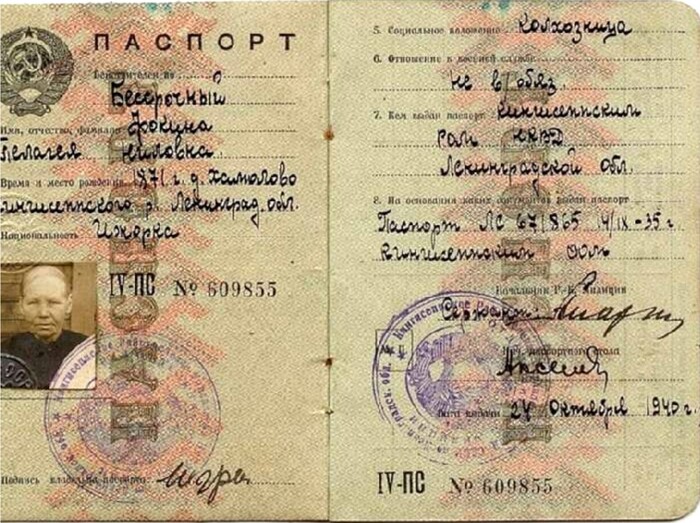 ПАСПОРТ
Действителен по
Бессрочный
Фокина
Имя, отчество, фамилия
Пелагея Ниловна
Время и место рождения 1871 г. д. Хамолово
Кингисеппского р. Ленинград. обл.
Национальность
Ижорка
IV-ПС № 609855
Подпись владельца паспорта
5. Социальное положение Колхозница
6. Отношение к военной службе
не в/обяз.
7. Кем выдан паспорт Кингисеппским
РОМ НКВД
Ленинградской обл.
8. На основании каких документов выдан паспорт
Паспорт ЛС 67/865 14/IX-35 г
Кингисеппским
Начальник Р.-К. Милиции
Сержант
М. П.
Нач. паспортного стола
Дата выдачи 24 Октября 1940 г.
IV-ПС № 609855